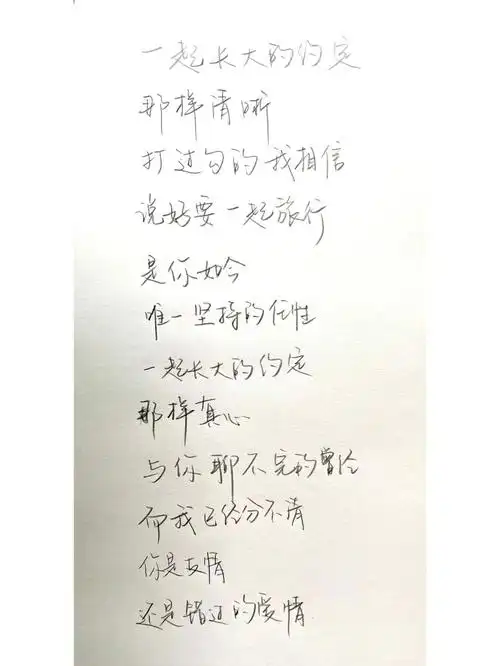 一起长大的约定
那样清晰
打过勾的我相信
说好要一起旅行
是你如今
唯一坚持的任性
一起长大的约定
那样真心
与你聊不完的曾经
而我已经分不清
你是友情
还是错过的爱情